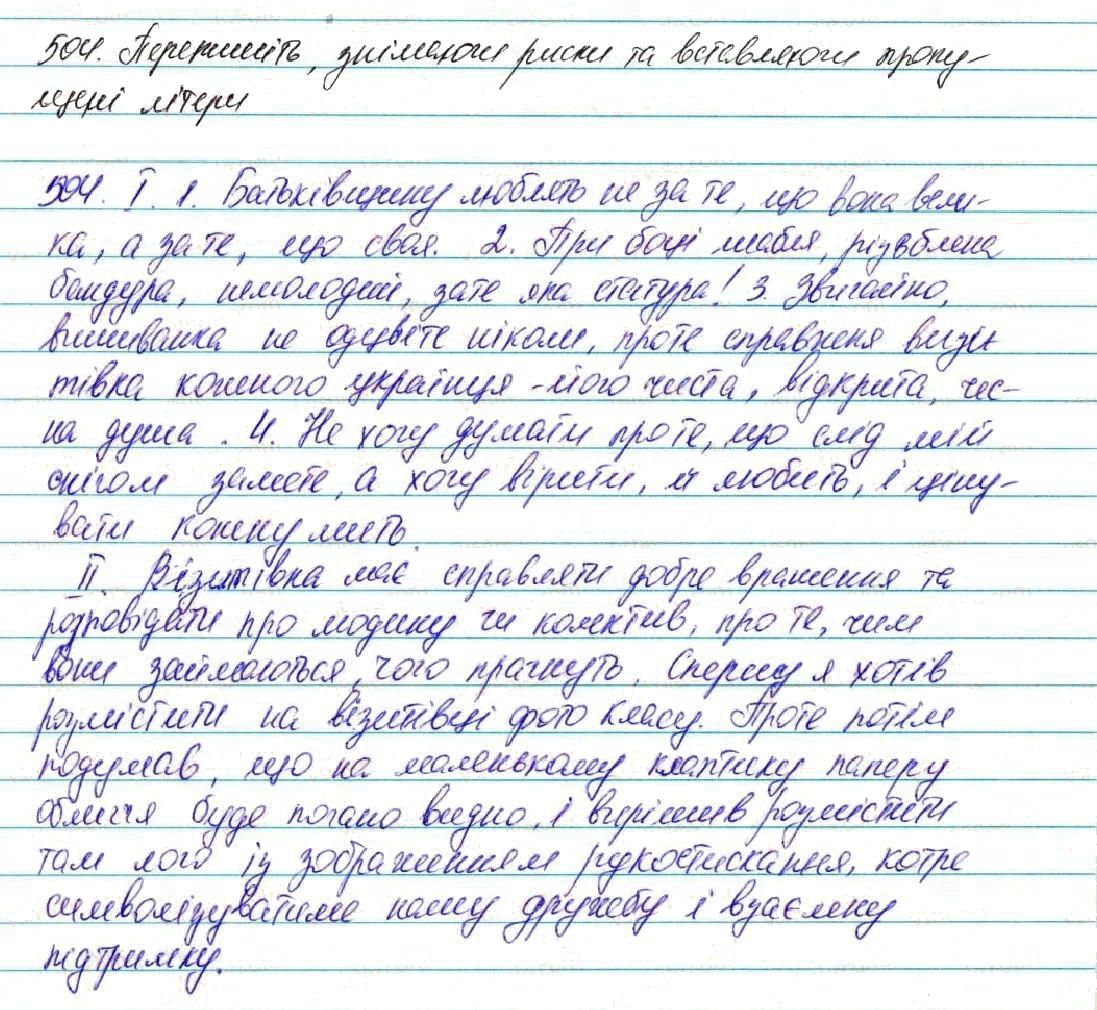 504. Перепишіть, знімаючи риски та вставляючи пропу-
щені літери
504. I. 1. Батьківщину люблять не за те, що вона вели-
ка, а за те, що своя. 2. При боці шабля, різьблена
бандура, немолодий, зате яка статура! 3. Звичайно,
вишиванка не одцвіте ніколи, проте справжня визи
тівка кожного українця - його чиста, відкрита, чес-
на душа. 4. Не хочу думати про те, що слід мій
снігом замете, а хочу вірити, й любить, і ціну-
вати кожну мить.
II. Візитівка має справляти добре враження та
розповідати про людину чи колектив, про те, чим
вони займаються, чого прагнуть. Спершу я хотів
розмістити на візитівці фото класу. Проте потім
подумав, що на маленькому клаптику паперу
обличчя буде погано видно, і вирішив розмістити
там лого із зображенням рукостискання, котре
символізуватиме нашу дружбу і взаємну
підтримку.